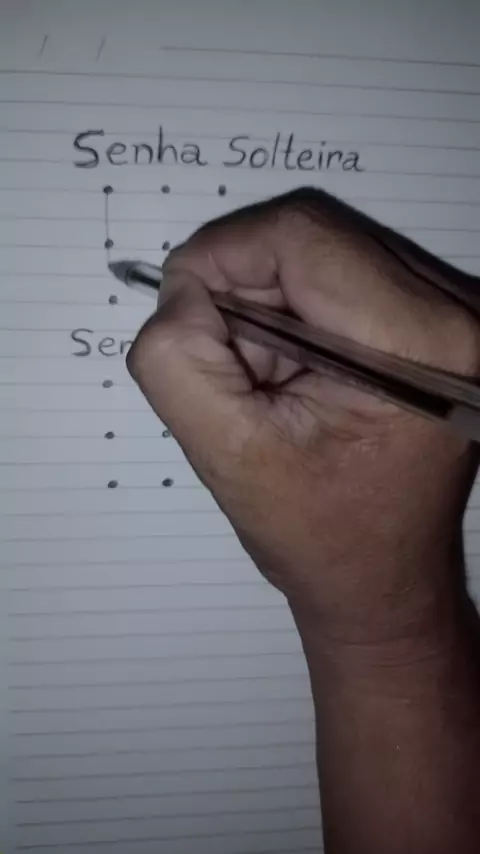 Senha Solteira